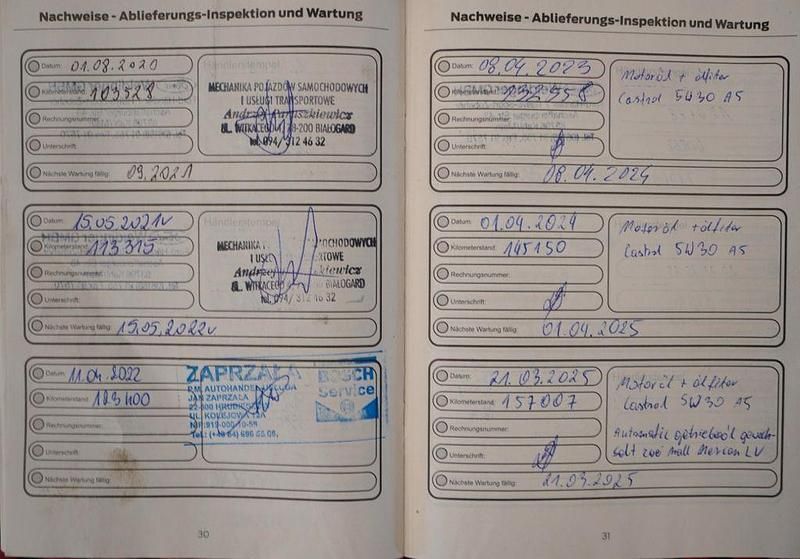 Nachweise - Ablieferungs-Inspektion und Wartung
Datum: 01.08.2020
Kilometerstand: 103328
Rechnungsnummer:
Unterschrift:
Nächste Wartung fällig: 09.2021
Händlerstempel
MECHANIKA POJAZDÓW SAMOCHODOWYCH
I USŁUGI TRANSPORTOWE
Andrzej
UL. WITKACEGO 78-200 BIAŁOGARD
tel. 094/ 312 46 32
Datum: 15.05.2021r
Kilometerstand: 113315
Rechnungsnummer:
Unterschrift:
Nächste Wartung fällig: 15.05.2022r
Händlerstempel
MECHANIKA SAMOCHODOWYCH
Andrzej
UL. WITKACEGO BIAŁOGARD
tel. 094/ 312 46 32
Datum: 11.04.2022
Kilometerstand: 123400
Rechnungsnummer:
Unterschrift:
Nächste Wartung fällig:
ZAPRZAŁA
P.M. AUTOHANDEL
JAN ZAPRZAŁA
22-500
UL. KOLEJOWA 12A
BOSCH
Service
30
Nachweise - Ablieferungs-Inspektion und Wartung
Datum: 08.04.2023
Kilometerstand:
Rechnungsnummer:
Unterschrift:
Nächste Wartung fällig: 08.04.2024
Motoröl + ölfiter
Castrol 5W30 A5
Datum: 01.04.2024
Kilometerstand: 145150
Rechnungsnummer:
Unterschrift:
Nächste Wartung fällig: 01.04.2025
Motoröl + ölfiter
Castrol 5W30 A5
Datum: 21.03.2025
Kilometerstand: 157007
Rechnungsnummer:
Unterschrift:
Nächste Wartung fällig: 21.03.2025
Motoröl + ölfiter
Castrol 5W30 A5
Automatic getriebeöl
mall Mercon LV
31